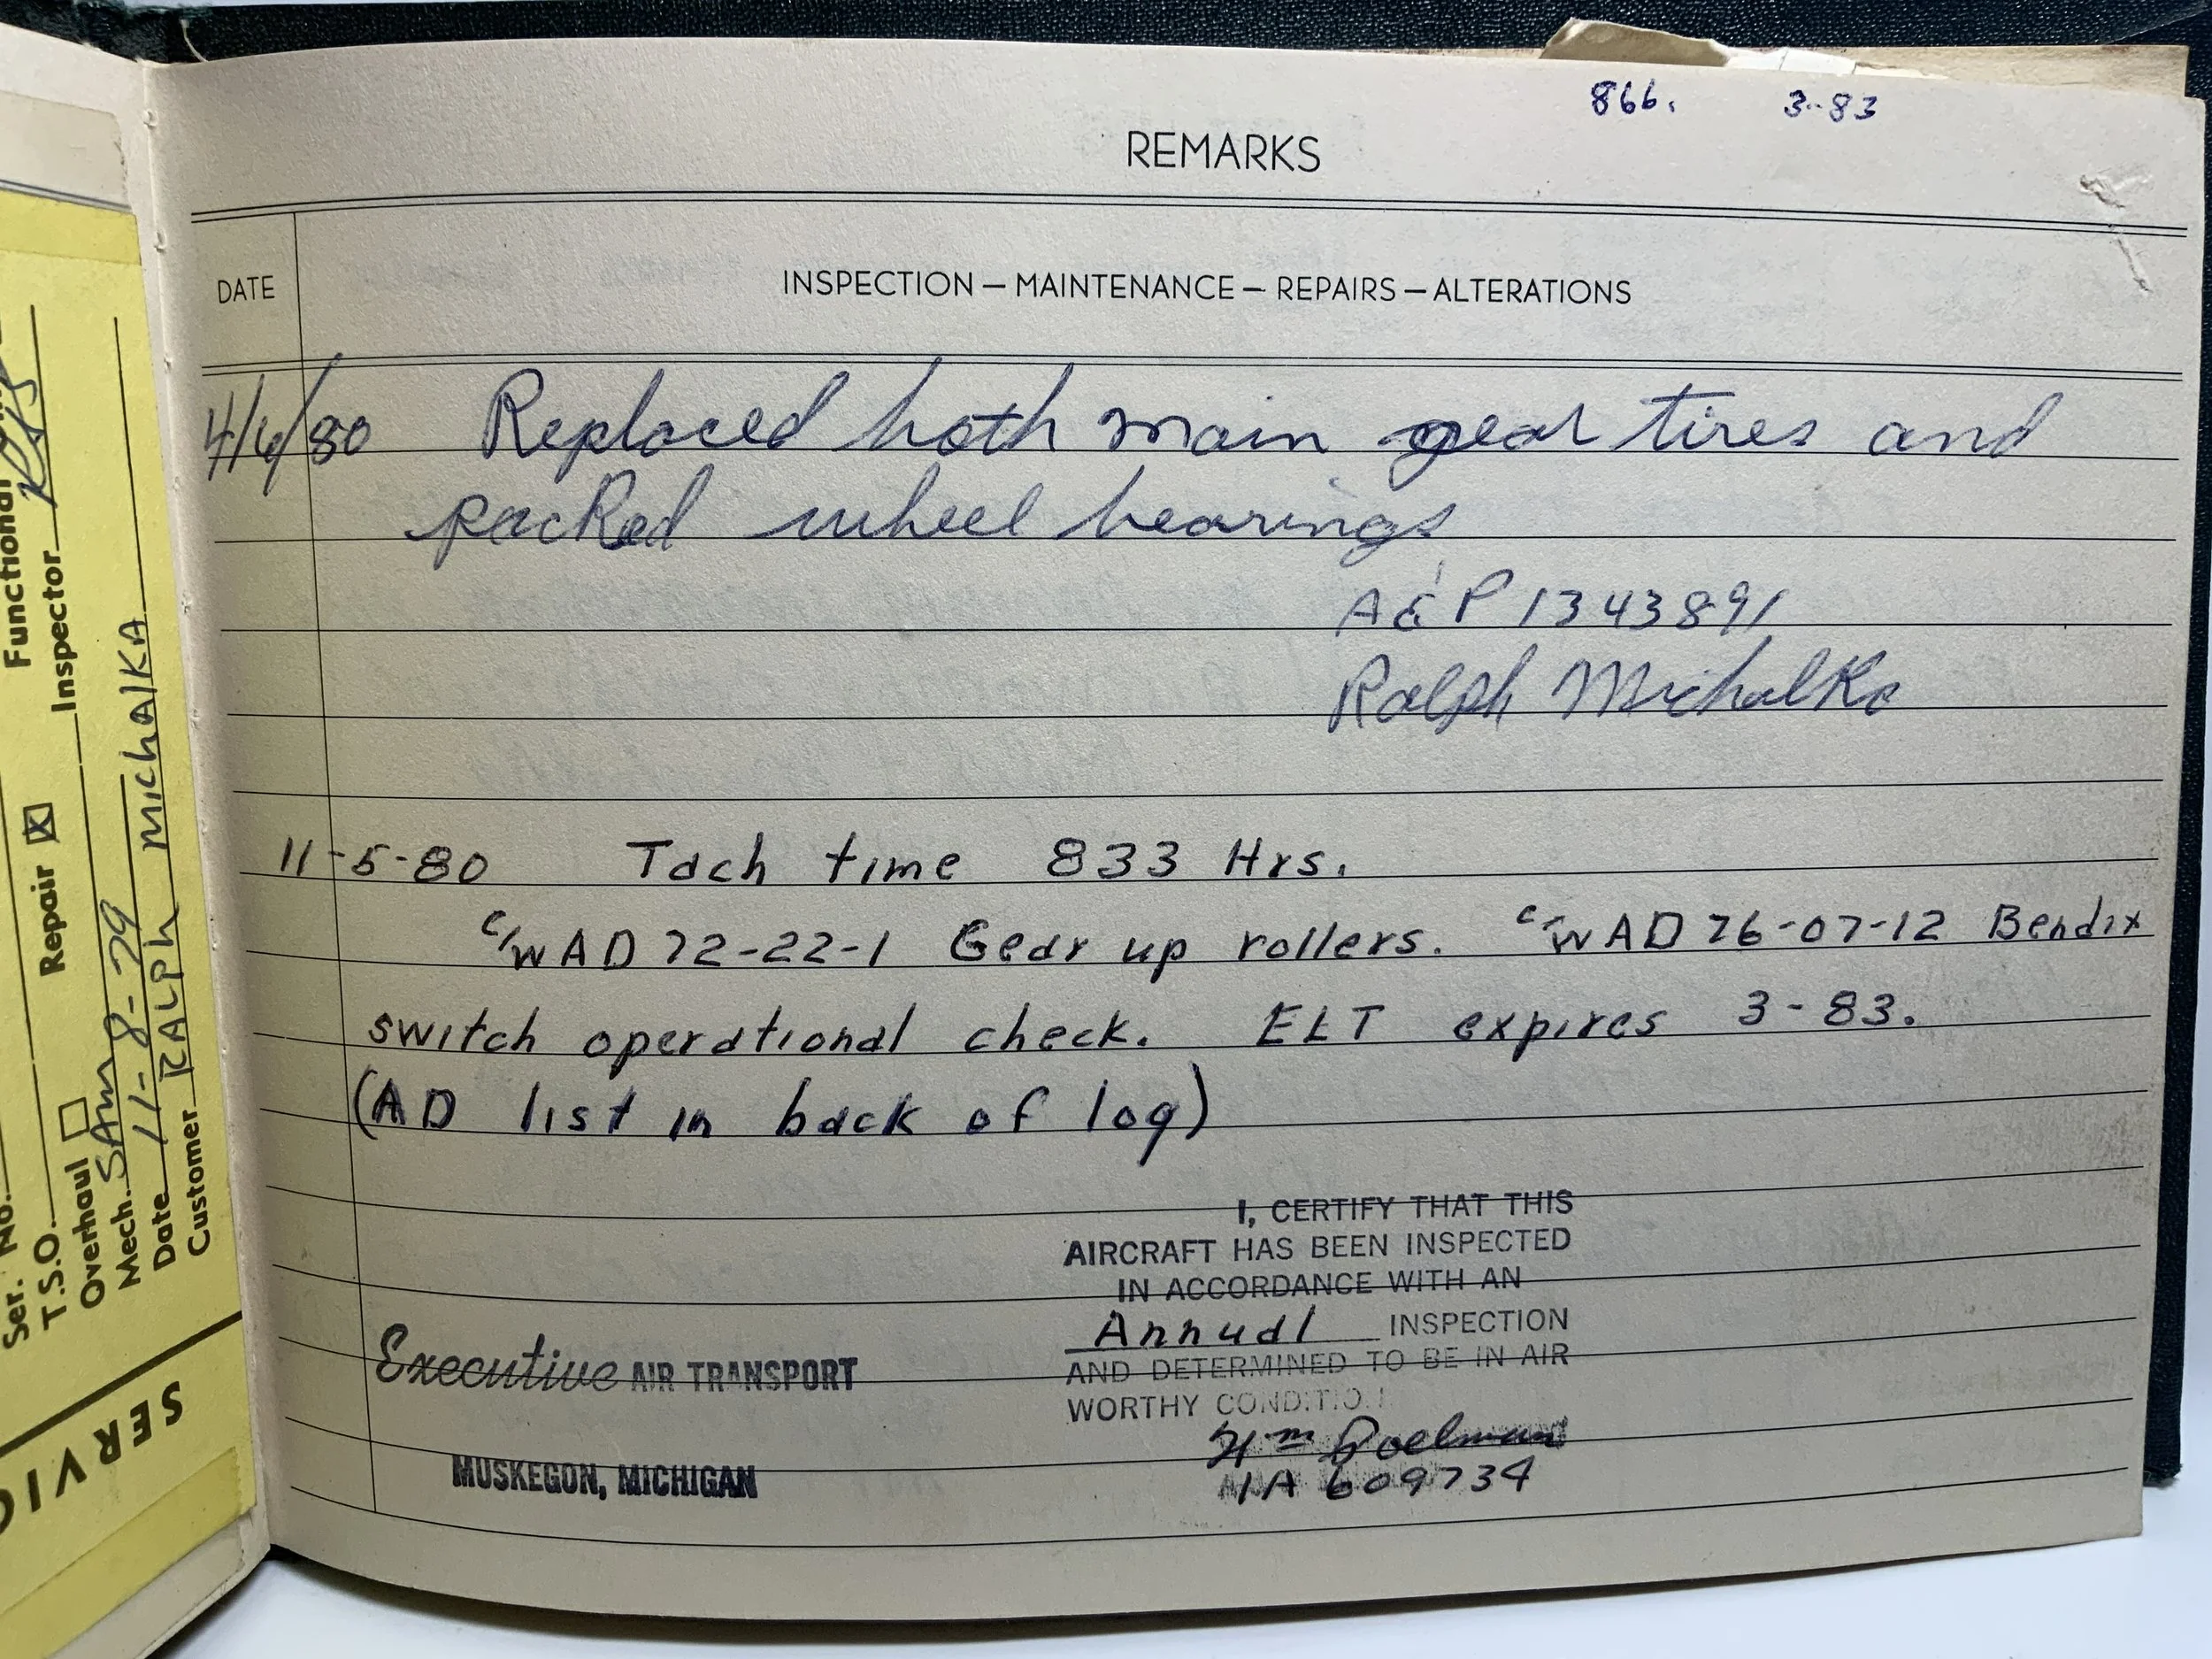 866. 3-83
REMARKS
DATE
INSPECTION — MAINTENANCE — REPAIRS — ALTERATIONS
4/6/80 Replaced both main gear tires and
packed wheel bearings
A&P 1343891
Ralph Michalka
11-5-80 Tach time 833 Hrs.
c/w AD 72-22-1 Gear up rollers. c/w AD 76-07-12 Bendix
switch operational check. ELT expires 3-83.
(AD list in back of log)
I, CERTIFY THAT THIS
AIRCRAFT HAS BEEN INSPECTED
IN ACCORDANCE WITH AN
Annual INSPECTION
AND DETERMINED TO BE IN AIR
WORTHY CONDITION
Wm Poelman
IA 609734
Executive AIR TRANSPORT
MUSKEGON, MICHIGAN
Functional
Inspector
Ser. No.
T.S.O.
Overhaul Repair X
Mech. SAM
Date 11-8-79
Customer RALPH MICHALKA
SERVIC